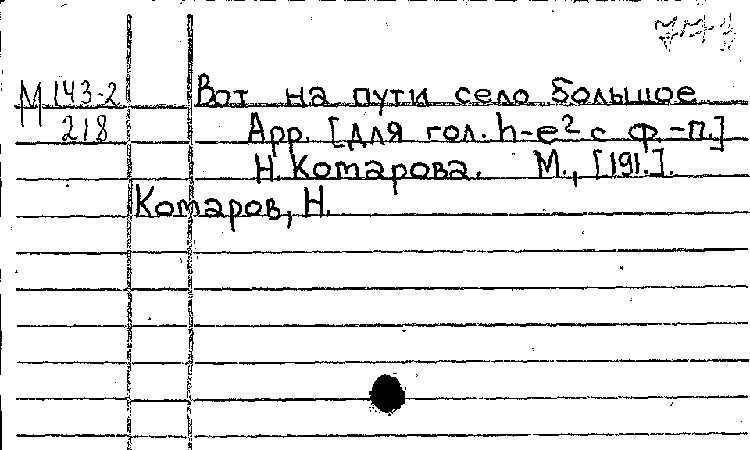 773
М 143-2
218
Вот на пути село большое
Арр. [для гол. h-e² с ф.-п.]
Н. Комарова. М., [191.].
Комаров, Н.